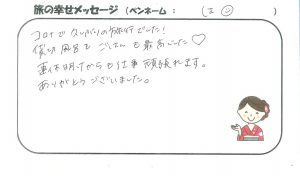 旅の幸せメッセージ (ペンネーム : )
コロナで久しぶりの旅行でした!
貸切風呂もごはんも最高でした♡
連休明けからも仕事頑張れます。
ありがとうございました。